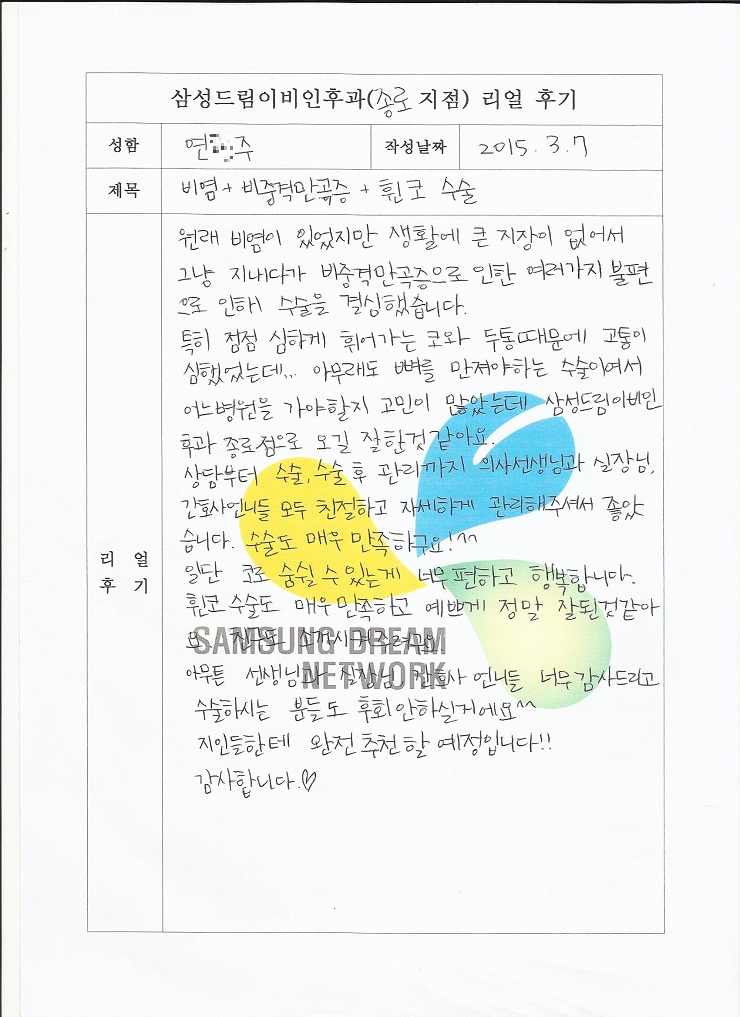 삼성드림이비인후과(종로 지점) 리얼 후기
성함 연 주 작성날짜 2015. 3. 7
제목 비염 + 비중격만곡증 + 휜코 수술
리 얼
후 기
원래 비염이 있었지만 생활에 큰 지장이 없어서
그냥 지내다가 비중격만곡증으로 인한 여러가지 불편
으로 인해 수술을 결심했습니다.
특히 점점 심하게 휘어가는 코와 두통때문에 고통이
심했었는데... 아무래도 뼈를 만져야하는 수술이여서
어느병원을 가야할지 고민이 많았는데 삼성드림이비인
후과 종로점으로 오길 잘한것같아요.
상담부터 수술, 수술 후 관리까지 의사선생님과 실장님,
간호사언니들 모두 친절하고 자세하게 관리해주셔서 좋았
습니다. 수술도 매우 만족하구요!^^
일단 코로 숨쉴 수 있는게 너무 편하고 행복합니다.
휜코 수술도 매우 만족하고 예쁘게 정말 잘된것같아
요
SAMSUNG DREAM
NETWORK
아무튼 선생님과 실장님 간호사 언니들 너무 감사드리고
수술하시는 분들도 후회안하실거에요^^
지인들한테 완전 추천할 예정입니다!!
감사합니다.♡